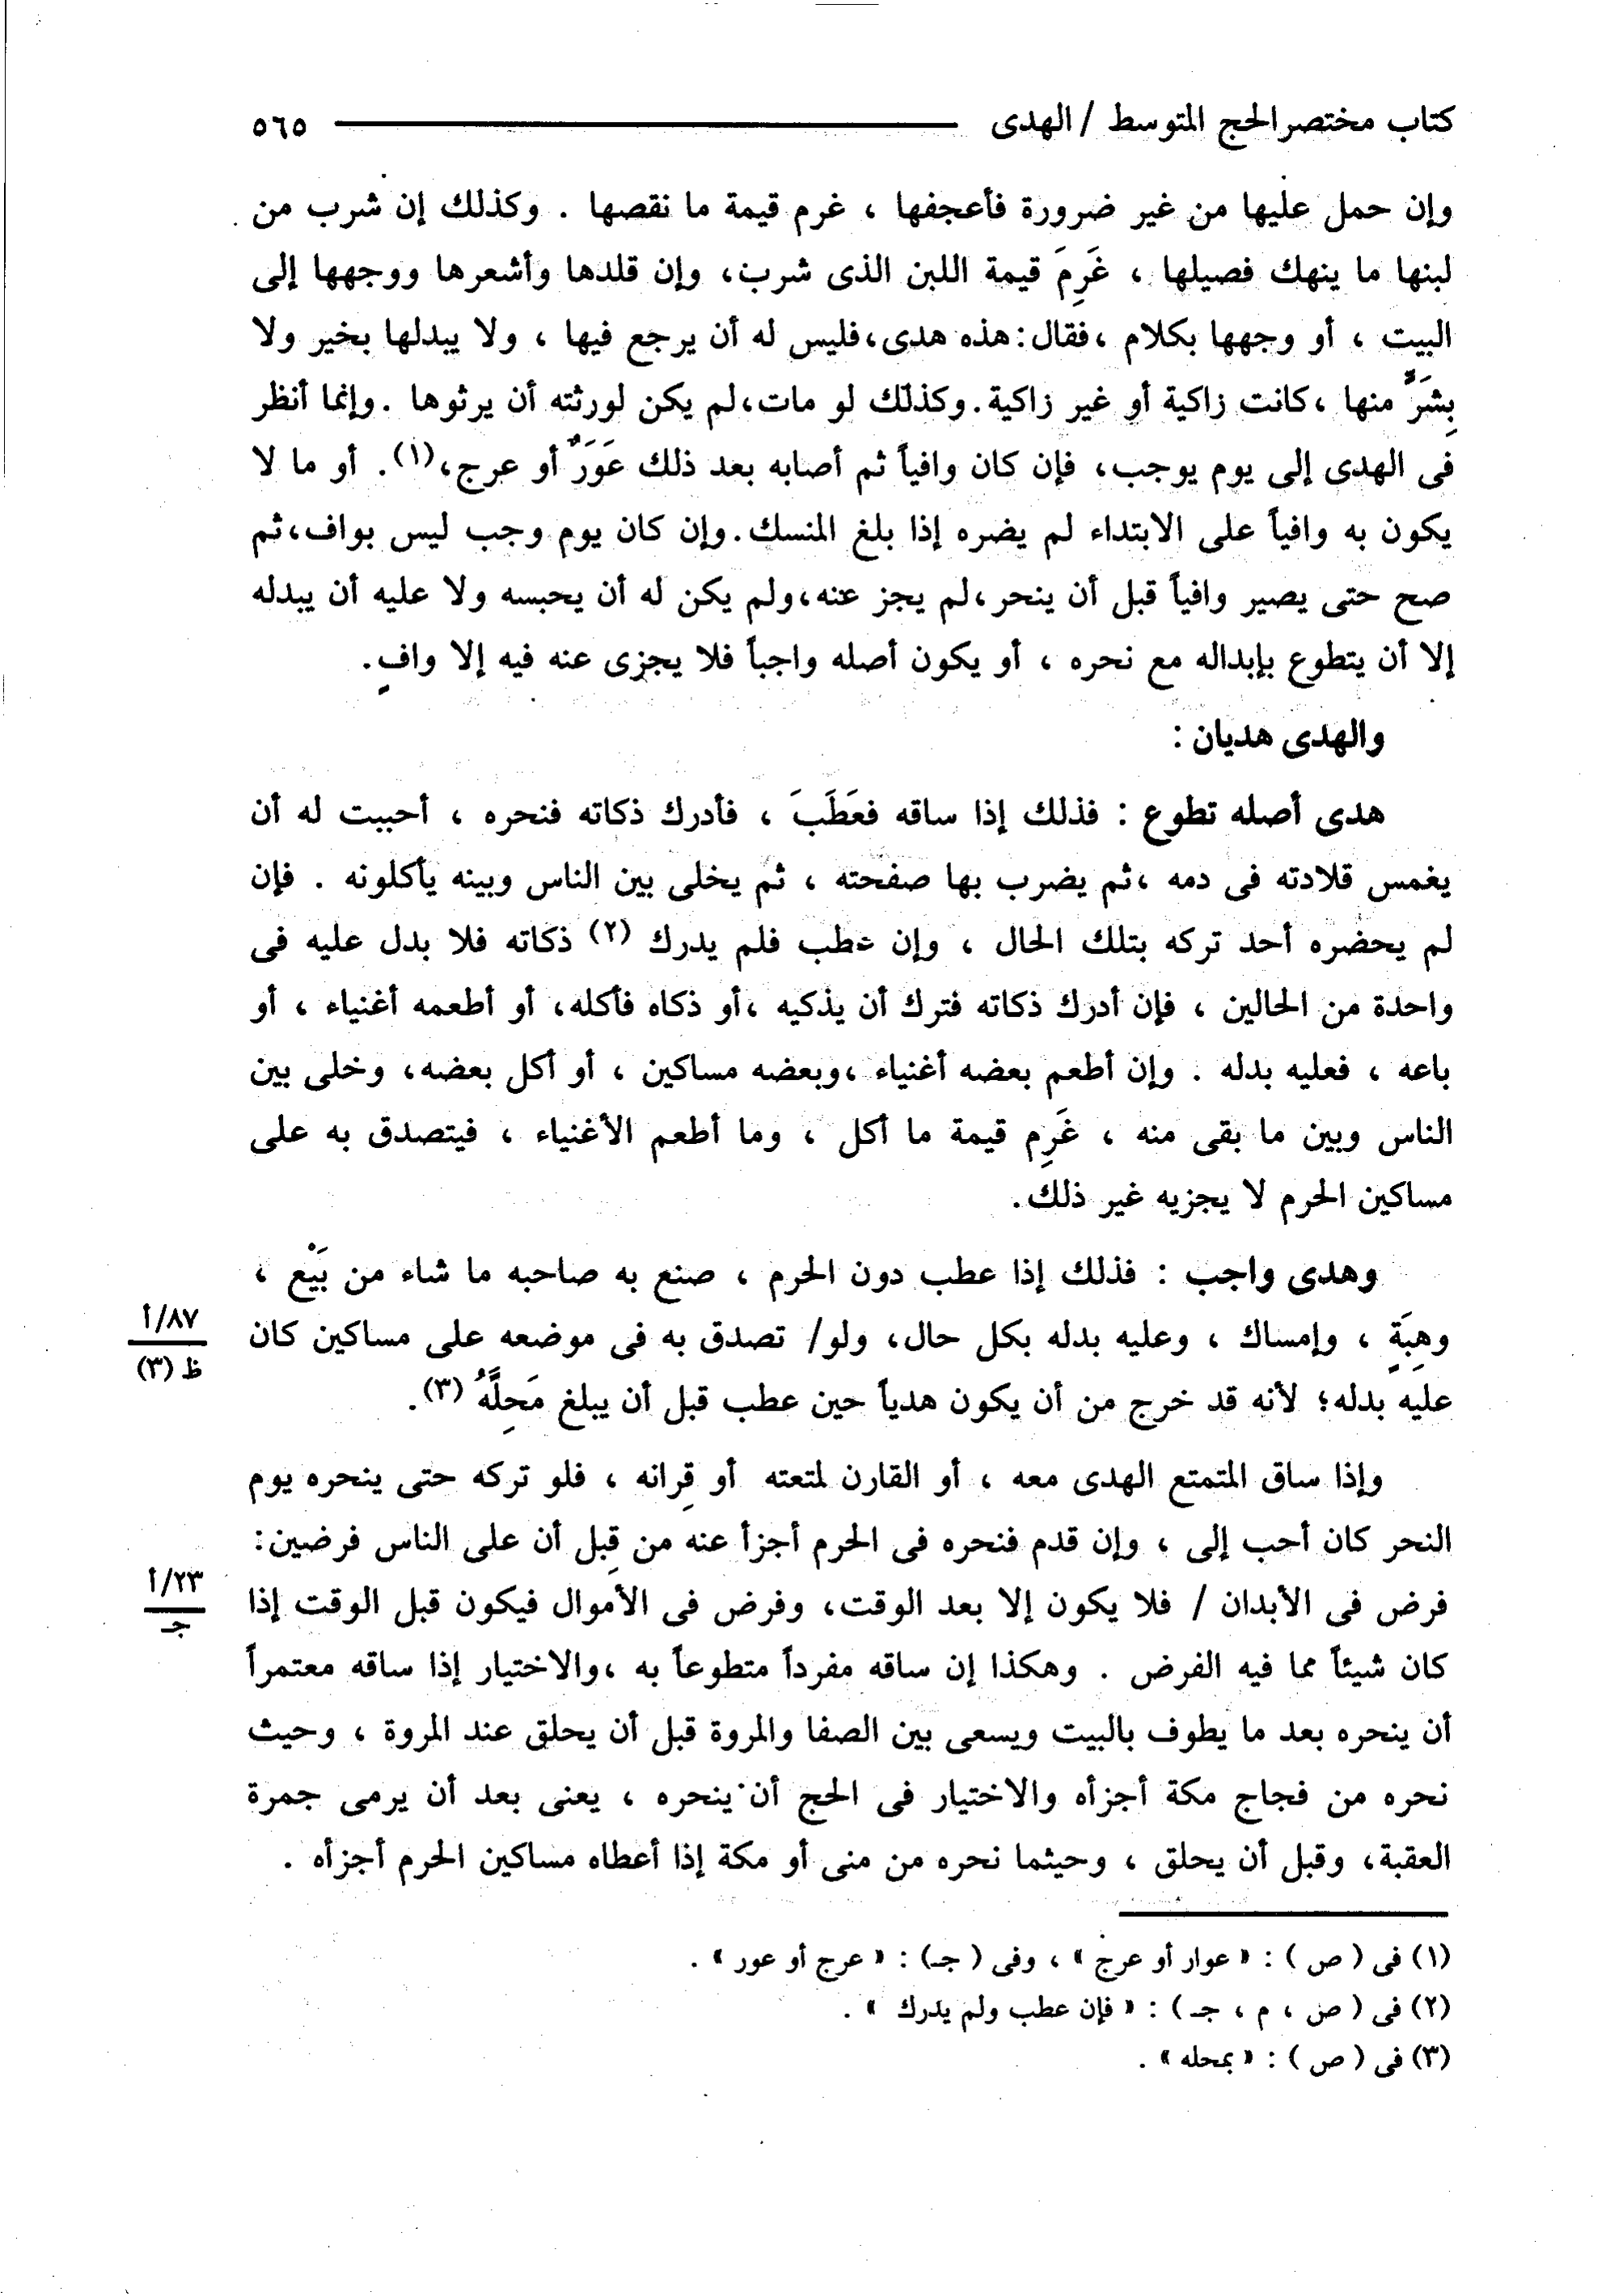 كتاب مختصر الحج المتوسط / الهدى ٥٦٥
وإن حمل عليها من غير ضرورة فأعجفها ، غرم قيمة ما نقصها . وكذلك إن شرب من
لبنها ما ينهك فصيلها ، غَرِمَ قيمة اللبن الذى شرب، وإن قلدها وأشعرها ووجهها إلى
البيت ، أو وجهها بكلام ،فقال: هذه هدى،فليس له أن يرجع فيها ، ولا يبدلها بخير ولا
بِشَرٍّ منها ،كانت زاكية أو غير زاكية.وكذلك لو مات،لم يكن لورثته أن يرثوها .وإنما أنظر
فى الهدى إلى يوم يوجب، فإن كان وافياً ثم أصابه بعد ذلك عَوَرٌ أو عرج،(١). أو ما لا
يكون به وافياً على الابتداء لم يضره إذا بلغ المنسك.وإن كان يوم وجب ليس بواف،ثم
صح حتى يصير وافياً قبل أن ينحر،لم يجز عنه،ولم يكن له أن يحبسه ولا عليه أن يبدله
إلا أن يتطوع بإبداله مع نحره ، أو يكون أصله واجباً فلا يجزى عنه فيه إلا وافٍ.
والهدى هديان :
هدى أصله تطوع : فذلك إذا ساقه فعَطَبَ ، فأدرك ذكاته فنحره ، أحببت له أن
يغمس قلادته فى دمه ،ثم يضرب بها صفحته ، ثم يخلى بين الناس وبينه يأكلونه . فإن
لم يحضره أحد تركه بتلك الحال ، وإن عطب فلم يدرك (٢) ذكاته فلا بدل عليه فى
واحدة من الحالين ، فإن أدرك ذكاته فترك أن يذكيه ،أو ذكاه فأكله، أو أطعمه أغنياء ، أو
باعه ، فعليه بدله . وإن أطعم بعضه أغنياء ،وبعضه مساكين ، أو أكل بعضه، وخلى بين
الناس وبين ما بقى منه ، غَرِم قيمة ما أكل ، وما أطعم الأغنياء ، فيتصدق به على
مساكين الحرم لا يجزيه غير ذلك.
وهدى واجب : فذلك إذا عطب دون الحرم ، صنع به صاحبه ما شاء من بَيْع ،
وهِبَةٍ ، وإمساك ، وعليه بدله بكل حال، ولو/ تصدق به فى موضعه على مساكين كان
٨٧/أ
ظ (٣)
عليه بدله؛ لأنه قد خرج من أن يكون هدياً حين عطب قبل أن يبلغ مَحِلَّهُ (٣).
وإذا ساق المتمتع الهدى معه ، أو القارن لمتعته أو قِرانه ، فلو تركه حتى ينحره يوم
النحر كان أحب إلى ، وإن قدم فنحره فى الحرم أجزأ عنه من قِبل أن على الناس فرضين:
فرض فى الأبدان / فلا يكون إلا بعد الوقت، وفرض فى الأموال فيكون قبل الوقت إذا
٢٣/أ
جـ
كان شيئاً مما فيه الفرض . وهكذا إن ساقه مفرداً متطوعاً به ،والاختيار إذا ساقه معتمراً
أن ينحره بعد ما يطوف بالبيت ويسعى بين الصفا والمروة قبل أن يحلق عند المروة ، وحيث
نحره من فجاج مكة أجزأه والاختيار فى الحج أن ينحره ، يعنى بعد أن يرمى جمرة
العقبة، وقبل أن يحلق ، وحيثما نحره من منى أو مكة إذا أعطاه مساكين الحرم أجزأه .
(١) فى ( ص ) : « عوار أو عرج » ، وفى ( جـ) : « عرج أو عور » .
(٢) فى ( ص ، م ، جـ ) : « فإن عطب ولم يدرك » .
(٣) فى ( ص ) : « بمحله » .